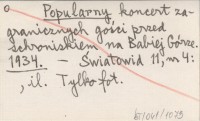 Popularny koncert za-
granicznych gości przed
schroniskiem na Babiej Górze.
1934. – Światowid 11, nr 4:
, il. Tylko fot.